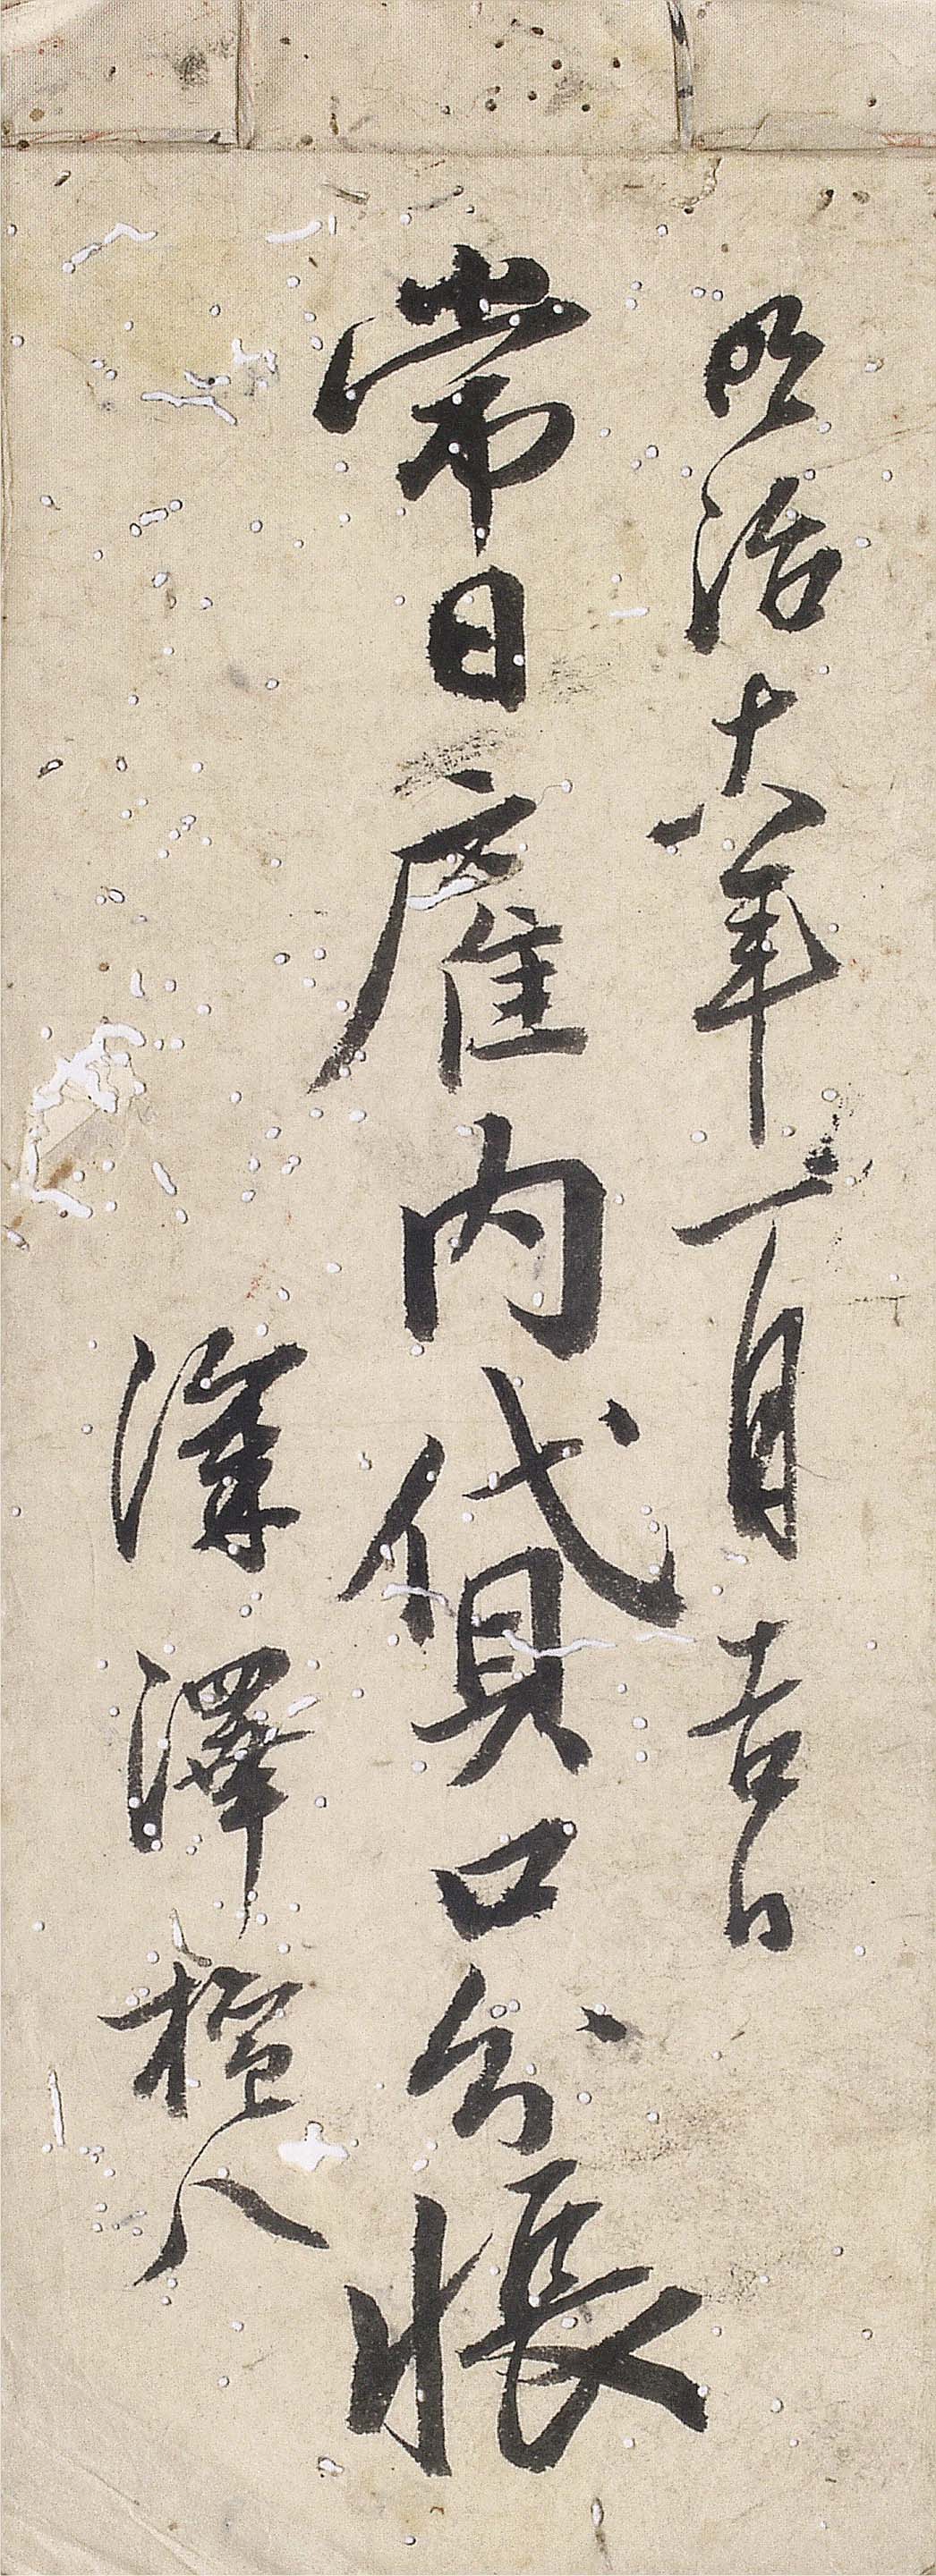 明治十八年一月吉日
常日雇内貸口分帳
深澤権八